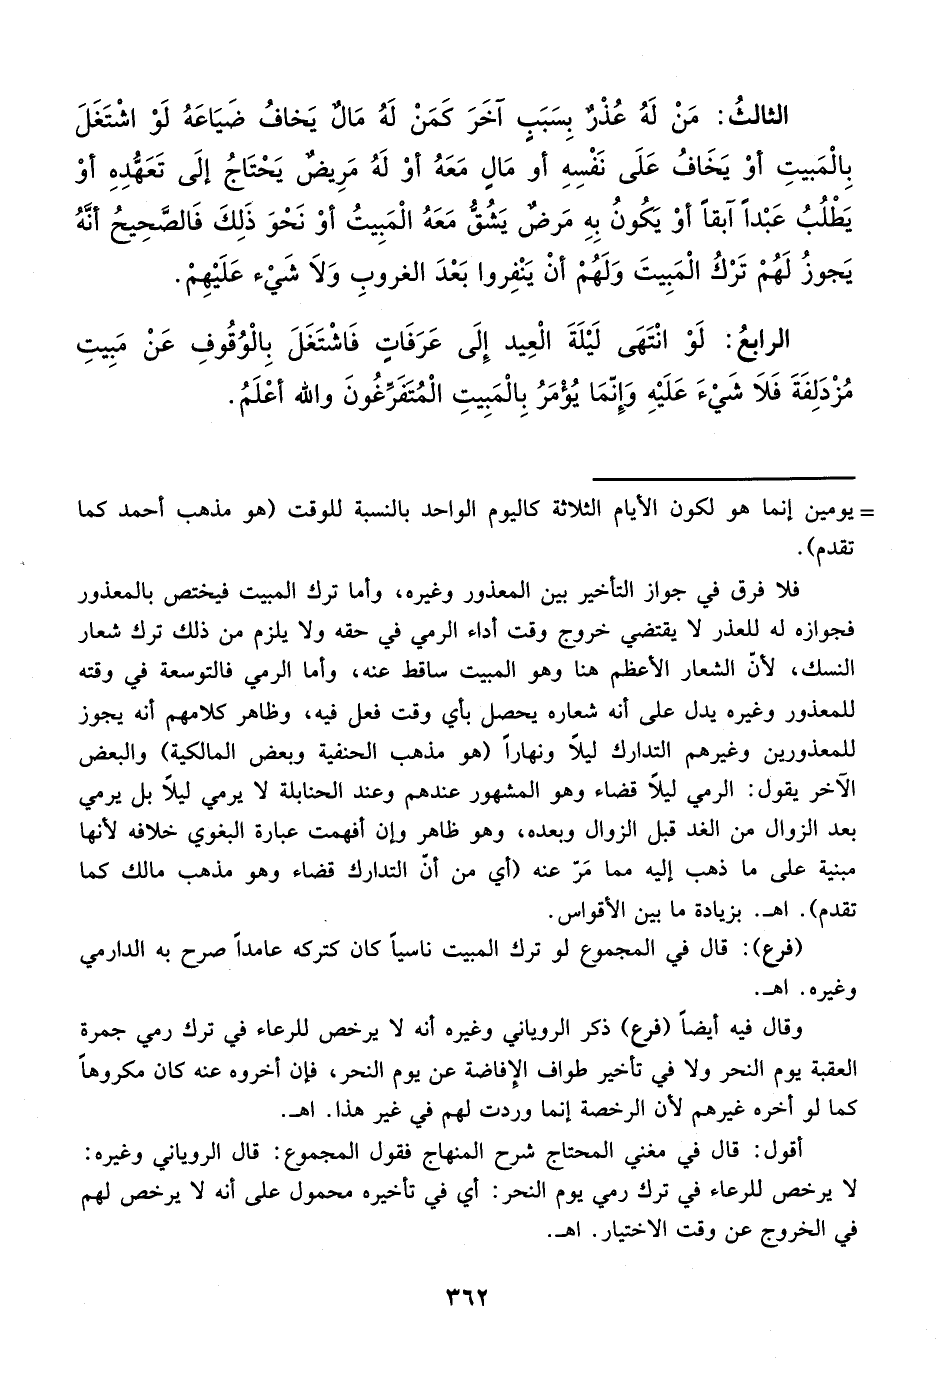 الثالثُ: مَنْ لَهُ عُذْرٌ بِسَبَبٍ آخَرَ كَمَنْ لَهُ مَالٌ يَخافُ ضَيَاعَهُ لَوْ اشْتَغَلَ
بِالْمَبيتِ أوْ يَخَافُ عَلَى نَفْسِهِ أو مَالٍ مَعَهُ أوْ لَهُ مَرِيضٌ يَحْتَاجُ إلَى تَعَهُّدِهِ أوْ
يَطْلُبُ عَبْداً آبقاً أوْ يَكُونُ بِهِ مَرَضٌ يَشُقُّ مَعَهُ الْمَبيتُ أوْ نَحْوَ ذَلِكَ فَالصَّحِيحُ أنَّهُ
يَجوزُ لَهُمْ تَرْكُ الْمَبيتَ وَلَهُمْ أنْ يَنْفِروا بَعْدَ الغروبِ وَلاَ شَيْء عَلَيْهِمْ.
الرابعُ: لَوْ انْتَهَى لَيْلَةَ الْعِيد إلَى عَرَفَاتٍ فَاشْتَغَلَ بِالْوُقُوفِ عَنْ مَبِيتِ
مُزْدَلِفَةَ فَلاَ شَيْءَ عَلَيْهِ وَإنّمَا يُؤْمَرُ بِالْمَبِيتِ الْمُتَفَرِّغُونَ والله أعْلَمُ.
= يومين إنما هو لكون الأيام الثلاثة كاليوم الواحد بالنسبة للوقت (هو مذهب أحمد كما
تقدم).
فلا فرق في جواز التأخير بين المعذور وغيره، وأما ترك المبيت فيختص بالمعذور
فجوازه له للعذر لا يقتضي خروج وقت أداء الرمي في حقه ولا يلزم من ذلك ترك شعار
النسك، لأنّ الشعار الأعظم هنا وهو المبيت ساقط عنه، وأما الرمي فالتوسعة في وقته
للمعذور وغيره يدل على أنه شعاره يحصل بأي وقت فعل فيه، وظاهر كلامهم أنه يجوز
للمعذورين وغيرهم التدارك ليلاً ونهاراً (هو مذهب الحنفية وبعض المالكية) والبعض
الآخر يقول: الرمي ليلاً قضاء وهو المشهور عندهم وعند الحنابلة لا يرمي ليلاً بل يرمي
بعد الزوال من الغد قبل الزوال وبعده، وهو ظاهر وإن أفهمت عبارة البغوي خلافه لأنها
مبنية على ما ذهب إليه مما مَرّ عنه (أي من أنّ التدارك قضاء وهو مذهب مالك كما
تقدم). اهـ. بزيادة ما بين الأقواس.
(فرع): قال في المجموع لو ترك المبيت ناسياً كان كتركه عامداً صرح به الدارمي
وغيره. اهـ.
وقال فيه أيضاً (فرع) ذكر الروياني وغيره أنه لا يرخص للرعاء في ترك رمي جمرة
العقبة يوم النحر ولا في تأخير طواف الإفاضة عن يوم النحر، فإن أخروه عنه كان مكروهاً
كما لو أخره غيرهم لأن الرخصة إنما وردت لهم في غير هذا. اهـ.
أقول: قال في مغني المحتاج شرح المنهاج فقول المجموع: قال الروياني وغيره:
لا يرخص للرعاء في ترك رمي يوم النحر: أي في تأخيره محمول على أنه لا يرخص لهم
في الخروج عن وقت الاختيار. اهـ.
٣٦٢